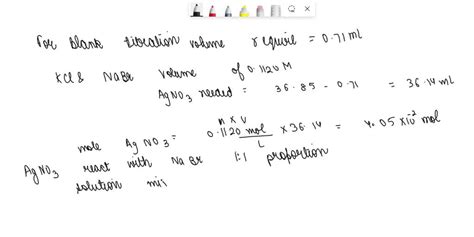 For blank titration volume require = 0.71 mL
KCl & NaBr volume of 0.1120 M
AgNO3 needed = 36.85 - 0.71 = 36.14 mL
n x v
mole AgNO3 = 0.1120 mol/L x 36.14 = 4.05 x 10^-2 mol
AgNO3 react with NaBr 1:1 proportion
solution mix